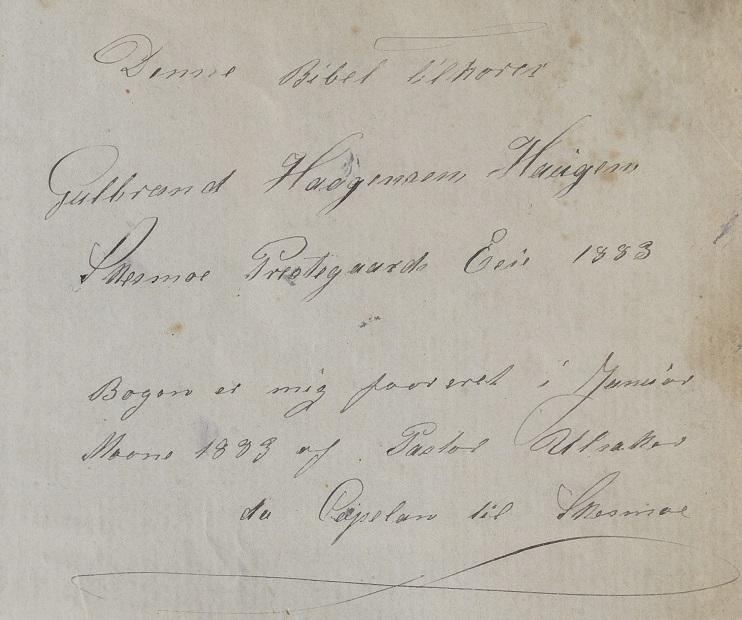 Denne Bibel tilhører
Gulbrand Haagensen Haugen
Skesmoe Prestegaards Eeie 1883
Bogen er mig foræret i Januar
Maane 1883 af Pastor Ulsaker
da Capelan til Skesmoe